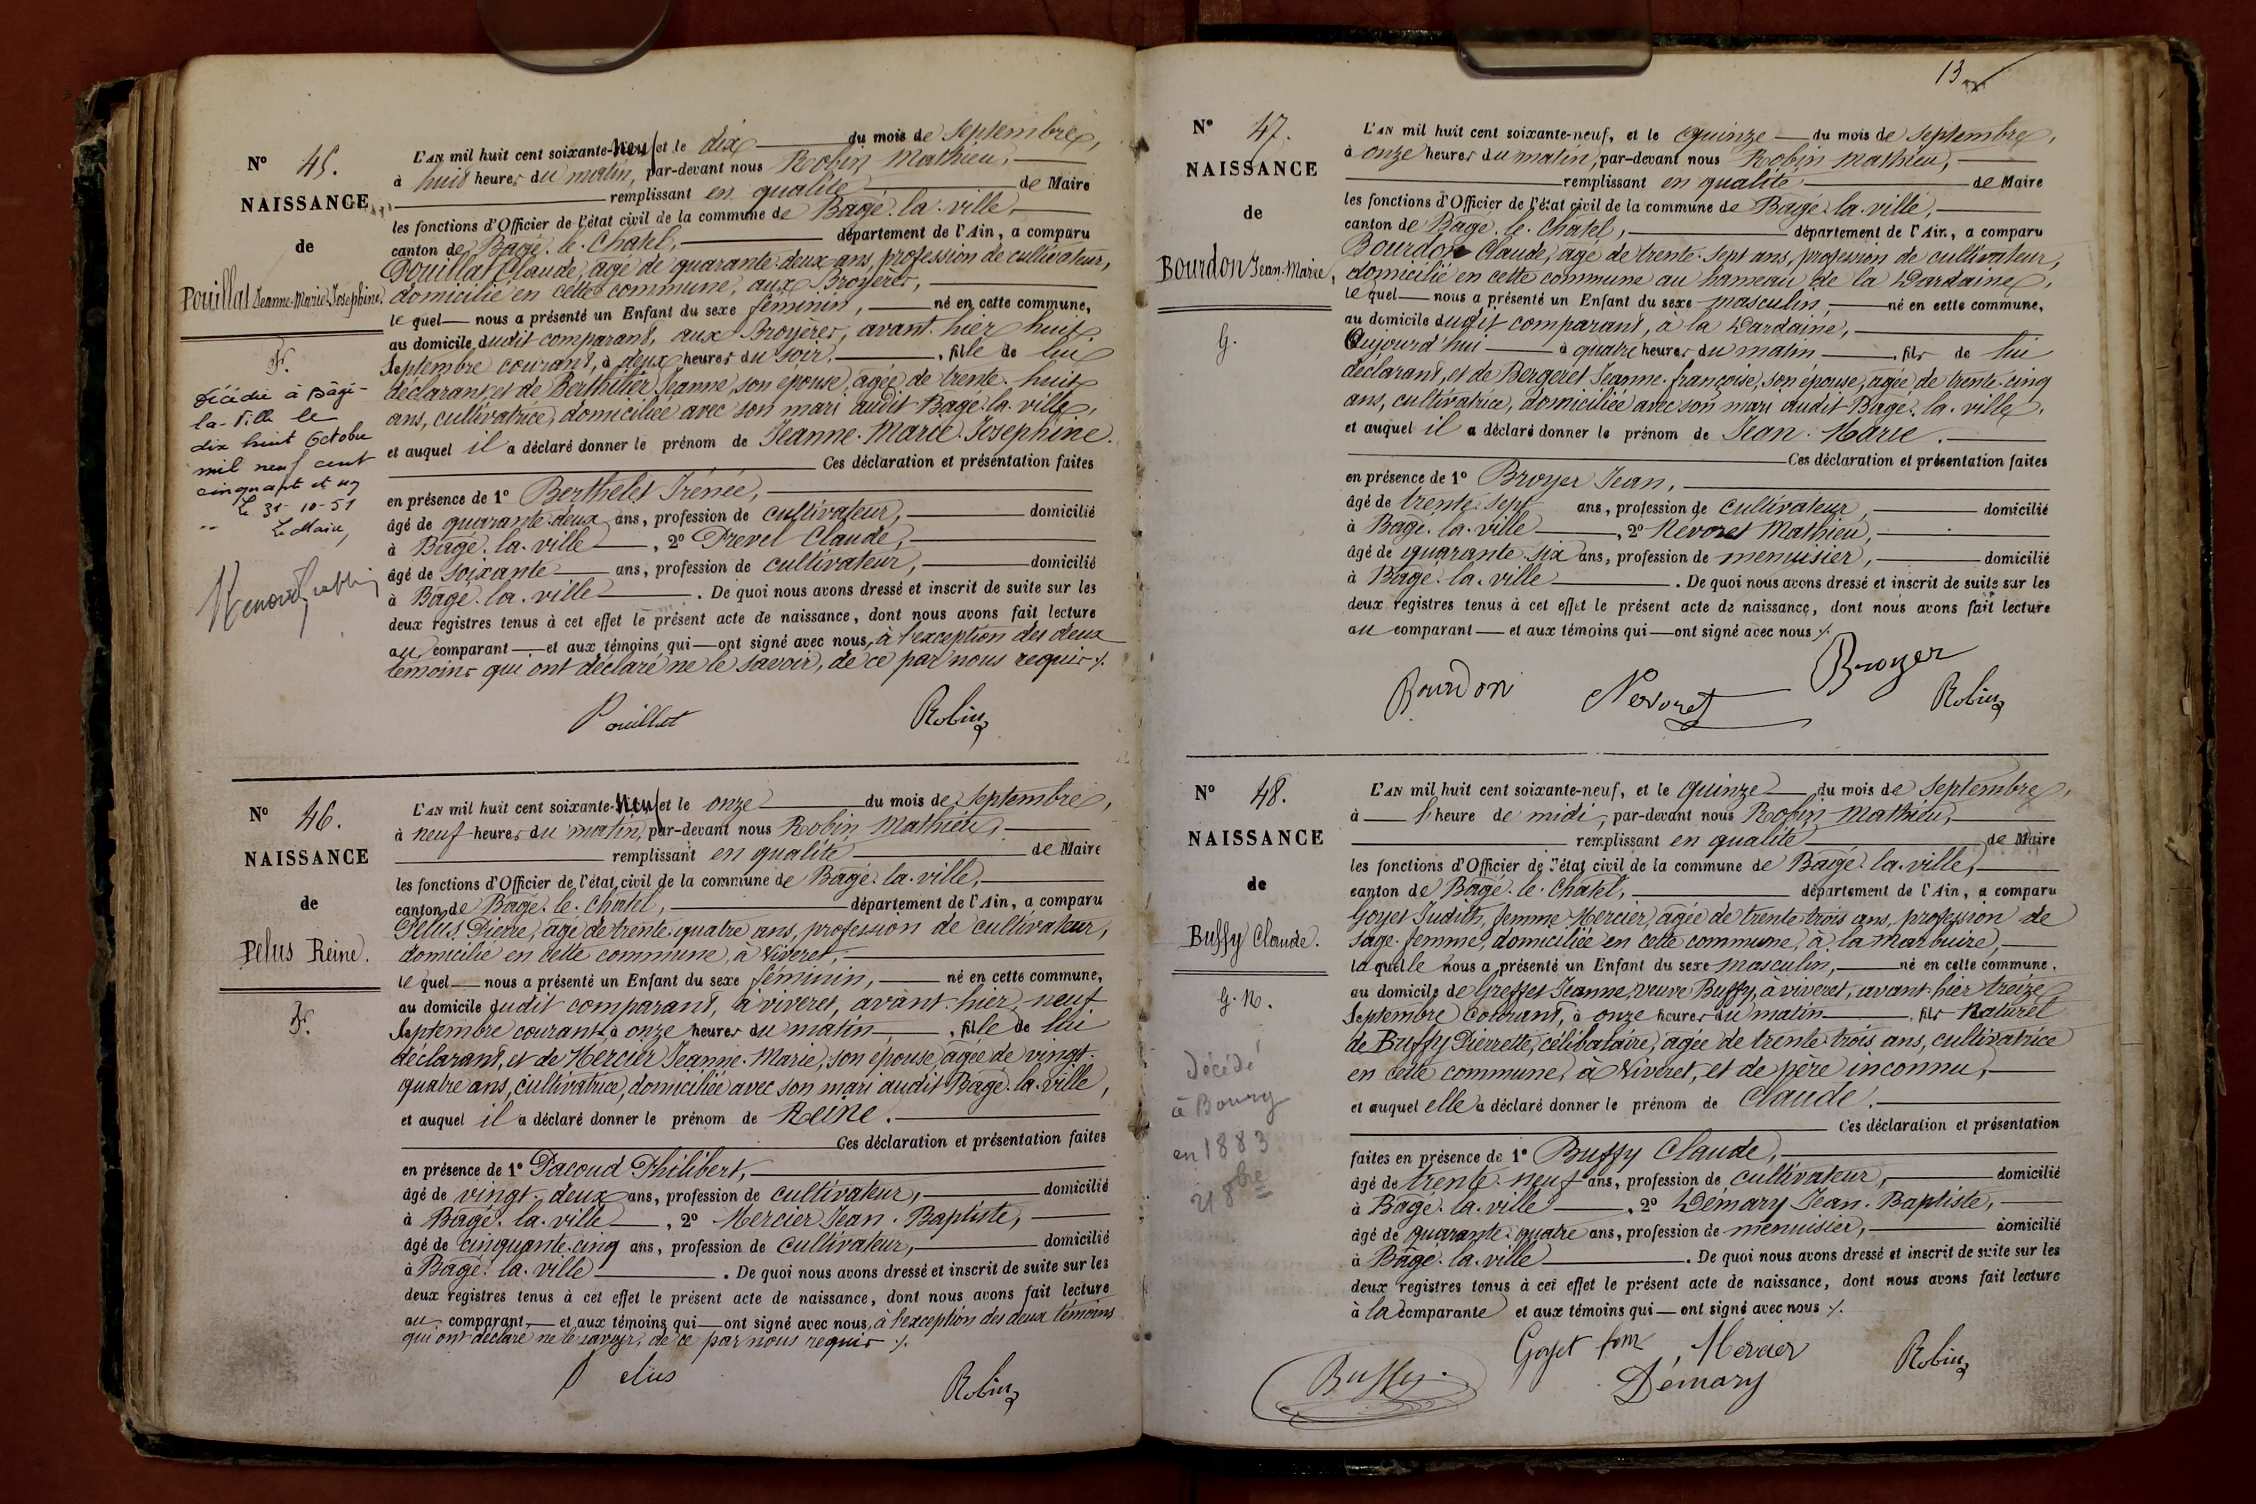 N° 45.
NAISSANCE
de
Pouillat Jeanne-Marie-Josephine.
F.
Décédée à Bâgé-
la-Ville le
dix huit Octobre
mil neuf cent
cinquante et un
Le 31-10-51
Le Maire,
L'AN mil huit cent soixante-neuf et le dix du mois de Septembre,
à huit heures du matin, par-devant nous Robin Mathieu,
remplissant en qualité de Maire
les fonctions d'Officier de l'état civil de la commune de Bagé-la-ville,
canton de Bagé-le-Chatel, département de l'Ain, a comparu
Pouillat Claude, agé de quarante-deux ans, profession de cultivateur,
domicilié en cette commune, aux Broyères,
le quel nous a présenté un Enfant du sexe féminin, né en cette commune,
au domicile dudit comparant, aux Broyères, avant-hier huit
Septembre courant, à deux heures du soir, fille de lui
déclarant, et de Berthilier Jeanne, son épouse, agée de trente-huit
ans, cultivatrice, domiciliée avec son mari audit Bagé-la-ville,
et auquel il a déclaré donner le prénom de Jeanne-Marie-Josephine.
Ces déclaration et présentation faites
en présence de 1° Berthelet Irénée,
âgé de quarante-deux ans, profession de cultivateur, domicilié
à Bagé-la-ville, 2° Prevel Claude,
âgé de soixante ans, profession de cultivateur, domicilié
à Bagé-la-ville. De quoi nous avons dressé et inscrit de suite sur les
deux registres tenus à cet effet le présent acte de naissance, dont nous avons fait lecture
au comparant et aux témoins qui ont signé avec nous, à l'exception des deux
témoins qui ont déclaré ne le savoir, de ce par nous requis ./.
Pouillat Robin
N° 46.
NAISSANCE
de
Pelus Reine.
F.
L'AN mil huit cent soixante-neuf et le onze du mois de Septembre,
à neuf heures du matin, par-devant nous Robin Mathieu,
remplissant en qualité de Maire
les fonctions d'Officier de l'état civil de la commune de Bagé-la-ville,
canton de Bagé-le-Chatel, département de l'Ain, a comparu
Pelus Pierre, agé de trente-quatre ans, profession de cultivateur,
domicilié en cette commune, à Viveret,
le quel nous a présenté un Enfant du sexe féminin, né en cette commune,
au domicile dudit comparant, à viveret, avant-hier neuf
Septembre courant, à onze heures du matin, fille de lui
déclarant, et de Mercier Jeanne-Marie, son épouse, agée de vingt-
quatre ans, cultivatrice, domiciliée avec son mari audit Bagé-la-ville,
et auquel il a déclaré donner le prénom de Reine.
Ces déclaration et présentation faites
en présence de 1° Pacoud Philibert,
âgé de vingt-deux ans, profession de cultivateur, domicilié
à Bagé-la-ville, 2° Mercier Jean-Baptiste,
âgé de cinquante-cinq ans, profession de cultivateur, domicilié
à Bagé-la-ville. De quoi nous avons dressé et inscrit de suite sur les
deux registres tenus à cet effet le présent acte de naissance, dont nous avons fait lecture
au comparant et aux témoins qui ont signé avec nous, à l'exception des deux témoins
qui ont déclaré ne le savoir, de ce par nous requis ./.
Pelus Robin
13
N° 47.
NAISSANCE
de
Bourdon Jean-Marie,
G.
L'AN mil huit cent soixante-neuf, et le quinze du mois de Septembre,
à onze heures du matin, par-devant nous Robin Mathieu,
remplissant en qualité de Maire
les fonctions d'Officier de l'état civil de la commune de Bagé-la-ville,
canton de Bagé-le-Chatel, département de l'Ain, a comparu
Bourdon Claude, agé de trente-sept ans, profession de cultivateur,
domicilié en cette commune au hameau de la Dardaine,
le quel nous a présenté un Enfant du sexe masculin, né en cette commune,
au domicile dudit comparant, à la Dardaine,
Aujourd'hui à quatre heures du matin, fils de lui
déclarant, et de Bergeret Jeanne-françoise, son épouse, agée de trente-cinq
ans, cultivatrice, domiciliée avec son mari audit Bagé-la-ville,
et auquel il a déclaré donner le prénom de Jean-Marie.
Ces déclaration et présentation faites
en présence de 1° Broyer Jean,
âgé de trente-sept ans, profession de cultivateur, domicilié
à Bagé-la-ville, 2° Nevoret Mathieu,
âgé de quarante-six ans, profession de menuisier, domicilié
à Bagé-la-ville. De quoi nous avons dressé et inscrit de suite sur les
deux registres tenus à cet effet le présent acte de naissance, dont nous avons fait lecture
au comparant et aux témoins qui ont signé avec nous ./.
Bourdon Nevoret Broyer Robin
N° 48.
NAISSANCE
de
Buffy Claude.
G. N.
Décédé
à Bourg
en 1883
21 8bre
L'AN mil huit cent soixante-neuf, et le quinze du mois de Septembre,
à l'heure de midi, par-devant nous Robin Mathieu,
remplissant en qualité de Maire
les fonctions d'Officier de l'état civil de la commune de Bagé-la-ville,
canton de Bagé-le-Chatel, département de l'Ain, a comparu
Goyet Judith, femme Mercier, agée de trente-trois ans, profession de
Sage-femme, domiciliée en cette commune, à la Marbuire,
laquelle nous a présenté un Enfant du sexe masculin, né en cette commune,
au domicile de Greffet Jeanne, veuve Buffy, à viveret, avant-hier treize
Septembre Courant, à onze heures du matin, fils Naturel
de Buffy Pierrette, célibataire, agée de trente-trois ans, cultivatrice
en cette commune, à Viveret, et de père inconnu,
et auquel elle a déclaré donner le prénom de Claude.
Ces déclaration et présentation
faites en présence de 1° Buffy Claude,
âgé de trente-neuf ans, profession de cultivateur, domicilié
à Bagé-la-ville, 2° Démary Jean-Baptiste,
âgé de quarante-quatre ans, profession de menuisier, domicilié
à Bagé-la-ville. De quoi nous avons dressé et inscrit de suite sur les
deux registres tenus à cet effet le présent acte de naissance, dont nous avons fait lecture
à la comparante et aux témoins qui ont signé avec nous ./.
Goyet fme Mercier Robin
Buffy Démary